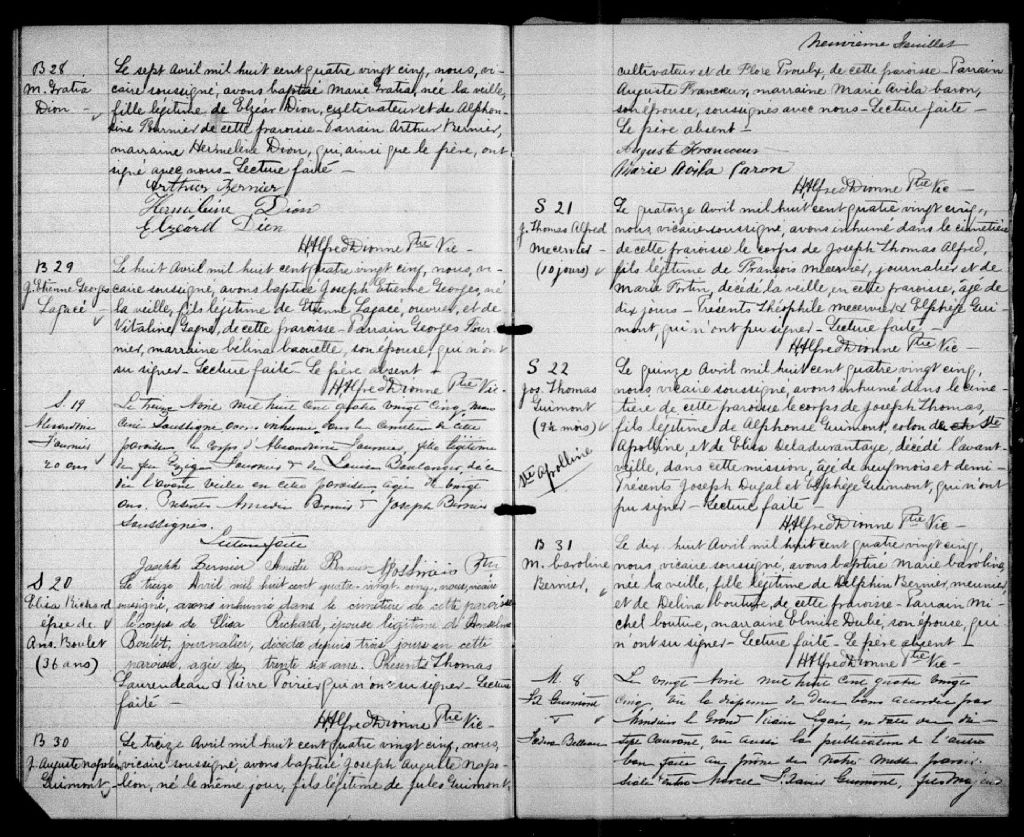 B 28
M. Gratia
Dion
Le sept Avril mil huit cent quatre vingt cinq, nous, vi-
caire soussigné, avons baptisé Marie Gratia, née la veille,
fille légitime de Elzéar Dion, cultivateur et de Alphon-
sine Bernier de cette paroisse - Parrain Arthur Bernier,
marraine Hermeline Dion, qui, ainsi que le père, ont
signé avec nous - Lecture faite -
Arthur Bernier
Dion
Elzéard Dion
H Alfred Dionne Ptre Vic -
B 29
J. Etienne Georges
Lagacé
Le huit Avril mil huit cent quatre vingt cinq, nous, vi-
caire soussigné, avons baptisé Joseph Etienne Georges, né
la veille, fils légitime de Etienne Lagacé, ouvrier, et de
Vitaline Gagné, de cette paroisse - Parrain Georges Four-
nier, marraine Célina Caouette, son épouse, qui n'ont
su signer - Lecture faite - Le père absent -
H Alfred Dionne Ptre Vic -
S. 19
Alexandrine
Fournier
20 ans
Le treize Avril mil huit cent quatre vingt cinq, nous
Curé Soussigné, avons inhumé dans le cimetière de cette
paroisse le corps d'Alexandrine Fournier, fille légitime
de feu Fournier & de Louise Boulanger, décé-
dée l'avant veille en cette paroisse, agée de vingt
ans. Présents Amédée Bernier & Joseph Bernier
Soussignés.
Lecture faite
Joseph Bernier Amédée Bernier Ptre
S 20
Elisa Richard
épse de
Ans. Boulet
(36 ans)
Le treize Avril mil huit cent quatre-vingt cinq, nous, vicaire
soussigné, avons inhumé dans le cimetière de cette paroisse
le corps de Elisa Richard, épouse légitime d'Anselme
Boulet, journalier, décédée depuis trois jours en cette
paroisse, agée de trente six ans. Présents Thomas
Laurendeau & Pierre Poirier qui n'ont su signer - Lecture
faite -
H Alfred Dionne Ptre Vic -
B 30
J. Auguste Napoléon
Guimont
Le treize Avril mil huit cent quatre vingt cinq, nous,
vicaire soussigné, avons baptisé Joseph Auguste Napo-
léon, né le même jour, fils légitime de Jules Guimont,
Neuvième Feuillet
cultivateur et de Flore Proulx, de cette paroisse - Parrain
Auguste Francœur, marraine Marie Avila Caron,
son épouse, soussignés avec nous - Lecture faite -
Le père absent -
Auguste Francœur
Marie Avila Caron
H Alfred Dionne Ptre Vic -
S 21
J. Thomas Alfred
Mecernier
(10 jours)
Le quatorze Avril mil huit cent quatre vingt cinq,
nous, vicaire soussigné, avons inhumé dans le cimetière
de cette paroisse le corps de Joseph Thomas Alfred,
fils légitime de François Mecernier, journalier et de
Marie Fortin, décédé la veille, en cette paroisse, âgé de
dix jours - Présents Théophile Mecernier & Elphège Gui-
mont, qui n'ont pu signer - Lecture faite -
H Alfred Dionne Ptre Vic -
S 22
Jos. Thomas
Guimont
(9½ mois)
Ste Apolline
Le quinze Avril mil huit cent quatre vingt cinq,
nous, vicaire soussigné, avons inhumé dans le cime-
tière de cette paroisse le corps de Joseph Thomas,
fils légitime de Alphonse Guimont, colon de Ste
Apolline et de Elisa Deladurantaye, décédé l'avant-
veille, dans cette mission, âgé de neuf mois et demi -
Présents Joseph Dugal et Elphège Guimont, qui n'ont
pu signer - Lecture faite -
H Alfred Dionne Ptre Vic -
B 31
M. Caroline
Bernier,
Le dix huit Avril mil huit cent quatre vingt cinq,
nous, vicaire soussigné, avons baptisé Marie Caroline,
née la veille, fille légitime de Delphin Bernier, meunier,
et de Delina Couture, de cette paroisse - Parrain Mi-
chel Couture, marraine Elmire Dubé, son épouse, qui
n'ont su signer - Lecture faite - Le père absent -
H Alfred Dionne Ptre Vic -
M. 8
Guimont
&
Belleau
Le vingt Avril mil huit cent quatre vingt
cinq, vu la dispense de deux bans accordée par
Monsieur le Grand Vicaire Legaré, en date du dix-
sept Courant, vu aussi la publication de l'autre
ban faite au prône de notre Messe parois-
siale entre Guimont, fils Majeur